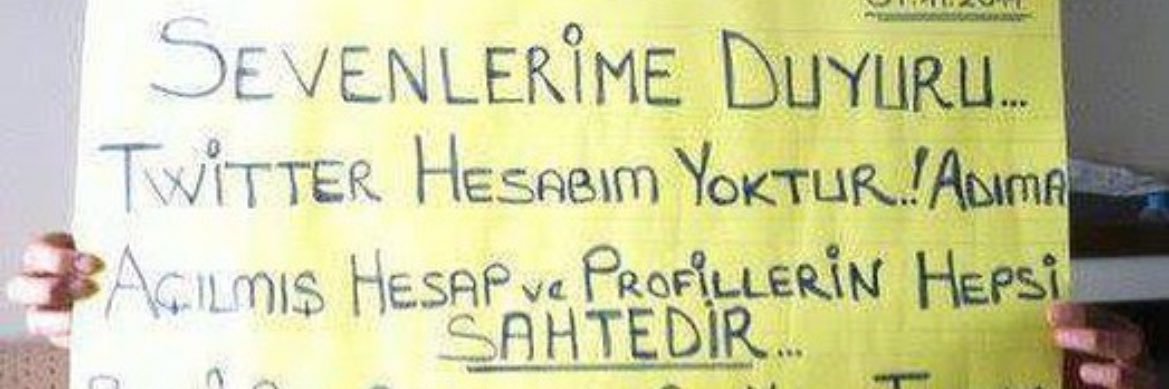 SEVENLERİME DUYURU...
TWİTTER HESABIM YOKTUR.! ADIMA
AÇILMIŞ HESAP ve PROFİLLERİN HEPSİ
SAHTEDİR...